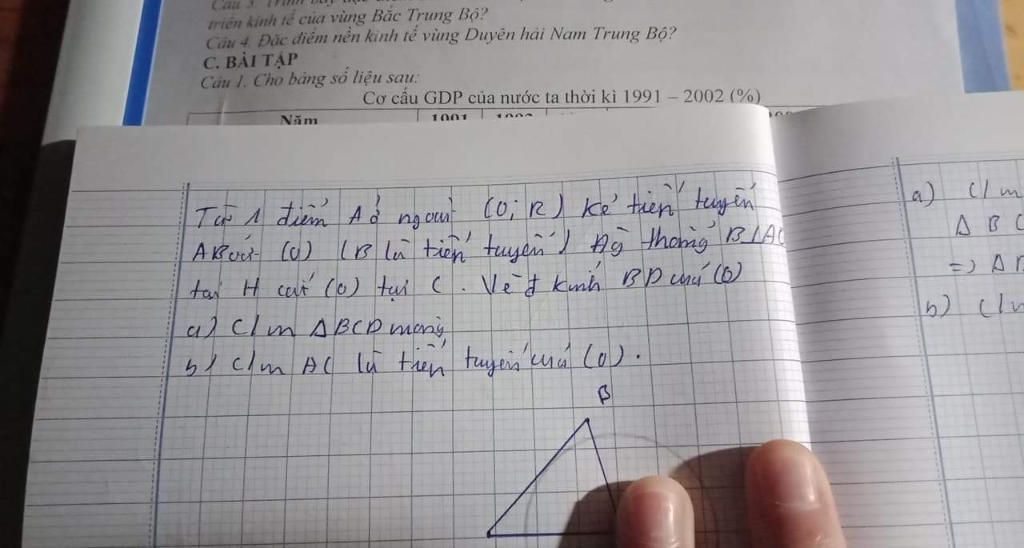 triển kinh tế của vùng Bắc Trung Bộ?
Câu 4. Đặc điểm nền kinh tế vùng Duyên hải Nam Trung Bộ?
C. BÀI TẬP
Câu 1. Cho bảng số liệu sau:
Cơ cấu GDP của nước ta thời kì 1991 – 2002 (%)
Năm 1991
Từ 1 điểm A ở ngoài (O; R) kẻ tiếp tuyến
AB với (O) (B là tiếp tuyến) thẳng B⊥AO
tại H cắt (O) tại C. Vẽ đ kính BD của (O)
a) C/m ΔBCD vuông
b) C/m AC là tiếp tuyến của (O).
B
a) C/m
Δ B C
=> Δ
b) C/